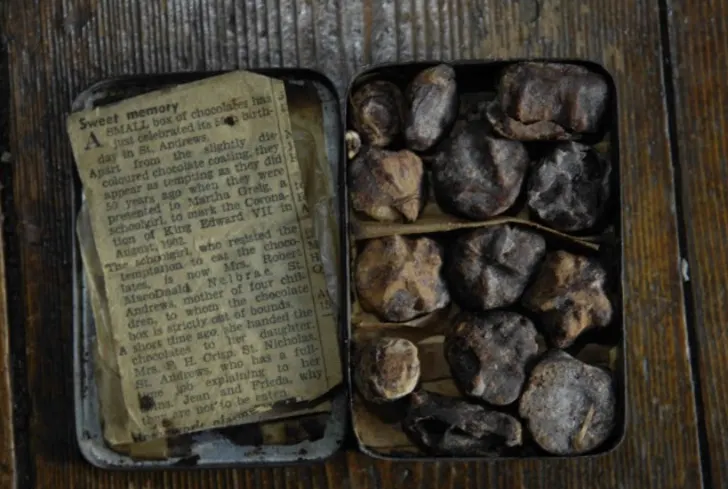 Sweet memory
A SMALL box of chocolates has
just celebrated its 50th birth-
day in St. Andrews.
Apart from the slightly dis-
coloured chocolate coating, they
appear as tempting as they did
50 years ago when they were
presented to Martha Greig, a
schoolgirl, to mark the Corona-
tion of King Edward VII in
August, 1902.
The schoolgirl, who resisted the
temptation to eat the choco-
lates, is now Mrs. Robert
MacDonald, St.
Andrews, mother of four chil-
dren, to whom the chocolate
box is strictly out of bounds.
A short time ago she handed the
chocolates to her daughter,
Mrs. P. H. Crisp, St. Nicholas,
St. Andrews, who has a full-
time job explaining to her
twins, Jean and Frieda, why
they are not to be eaten.